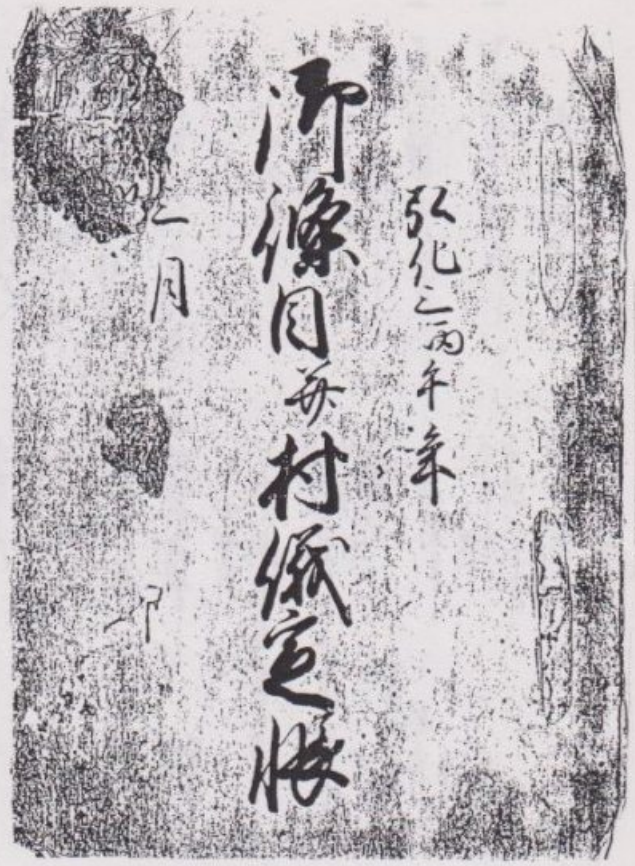 弘化三丙午年
御條目并村儀定帳
月